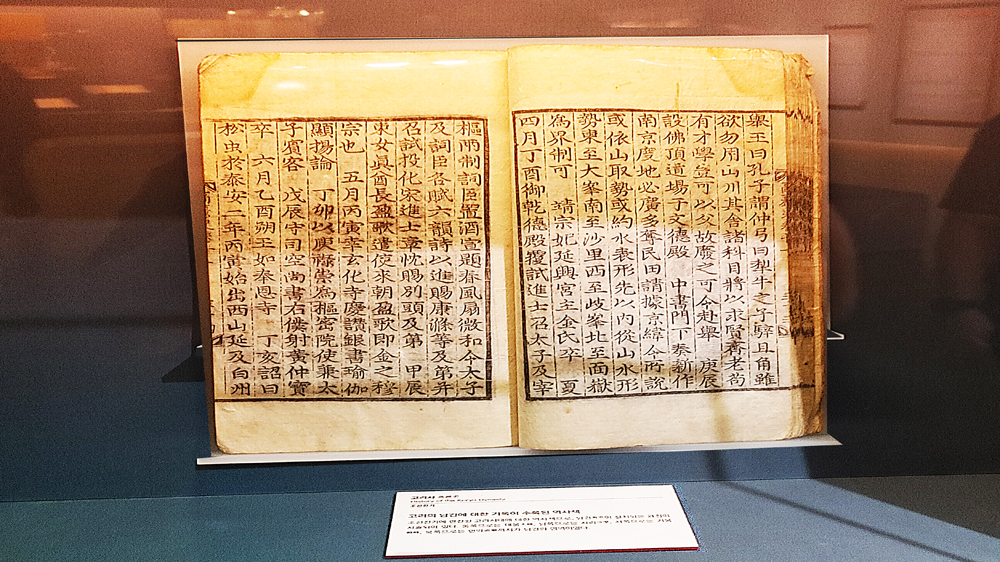 舉王曰孔子謂仲弓曰犁牛之子騂且角雖
欲勿用山川其舍諸科目將以求賢齊老苟
有才學豈可以父故廢之可令赴舉 庚辰
設佛頂道場于文德殿 中書門下奏新作
南京度地必廣多奪民田請據京緯令所說
或依山取勢或約水表形先以內從山水形
勢東至大峯南至沙里西至歧峯北至面嶽
為界制可 靖宗妃延興宮主金氏卒 夏
四月丁酉御乾德殿覆試進士召太子及宰
樞兩制詞臣置酒宣題春風扇微和令太子
及詞臣各賦六韻詩以進賜康滌等及第并
召試投化宋進士章忱賜別頭及第 甲辰
東女眞酋長盈歌遣使來朝盈歌即金之穆
宗也 五月丙寅幸玄化寺慶讚銀書瑜伽
顯揚論 丁卯以庾祿崇為樞密院使兼太
子賓客 戊辰守司空尚書右僕射黃仲寶
卒 六月乙酉朔王如奉恩寺 丁亥詔曰
松虫於泰安二年丙寅始出西山延及白州
고려사
History of the Koryo Dynasty
조선전기
고려의 남경에 대한 기록이 수록된 역사책